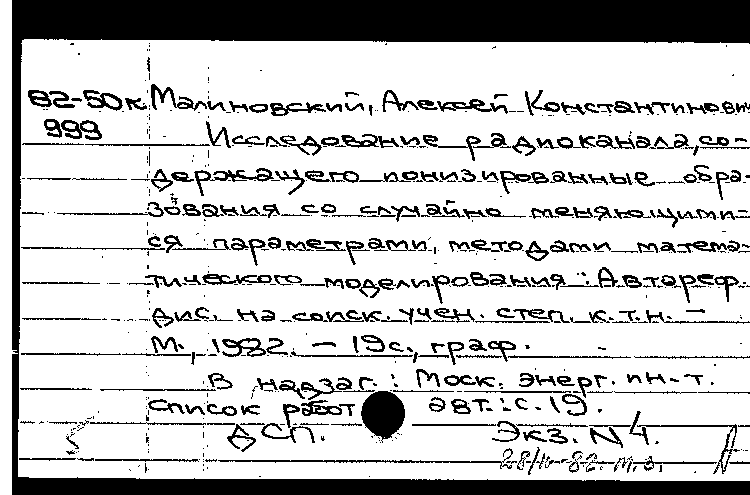 82-50к Малиновский, Алексей Константинович
999 Исследование радиоканала, со-
держащего ионизированные обра-
зования со случайно меняющими-
ся параметрами, методами матема-
тического моделирования : Автореф.
дис. на соиск. учен. степ. к.т.н. —
М., 1982. — 19с., граф.
В надзаг.: Моск. энерг. ин-т.
Список работ авт.: с. 19.
ДСП. Экз. N 4.